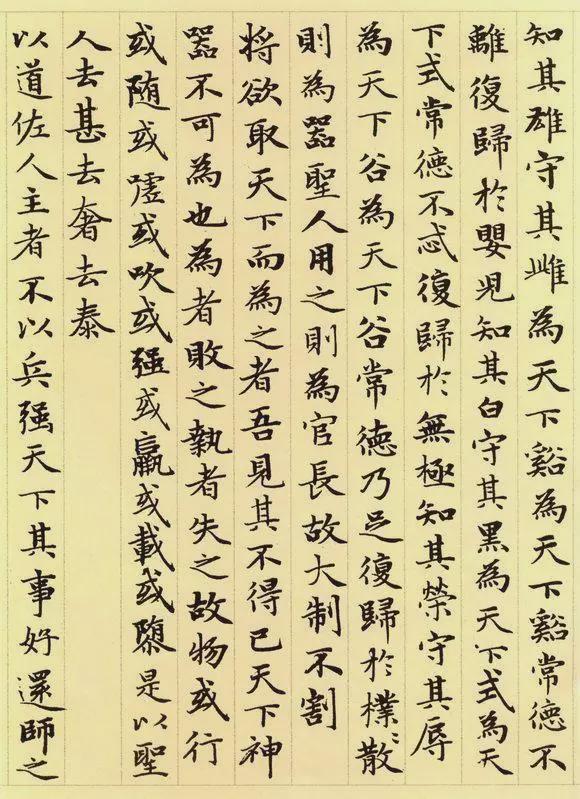 知其雄守其雌為天下谿為天下谿常德不
離復歸於嬰兒知其白守其黑為天下式為天
下式常德不忒復歸於無極知其榮守其辱
為天下谷為天下谷常德乃足復歸於樸〻散
則為噐聖人用之則為官長故大制不割
将欲取天下而為之者吾見其不得已天下神
噐不可為也為者敗之執者失之故物或行
或随或嘘或吹或强或羸或載或隳是以聖
人去甚去奢去泰
以道佐人主者不以兵强天下其事好還師之